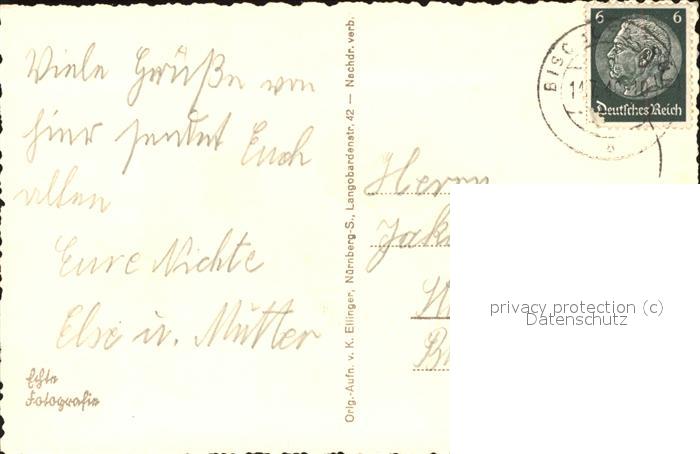 Viele Grüße von
hier sendet Euch
allen
Eure Nichte
Else u. Mutter
Echte
Fotografie
Orig.-Aufn. v. K. Ellinger, Nürnberg-S., Langobardenstr. 42 — Nachdr. verb.
6 6
Deutsches Reich
BISC
Herrn
Jak
privacy protection (c)
Datenschutz